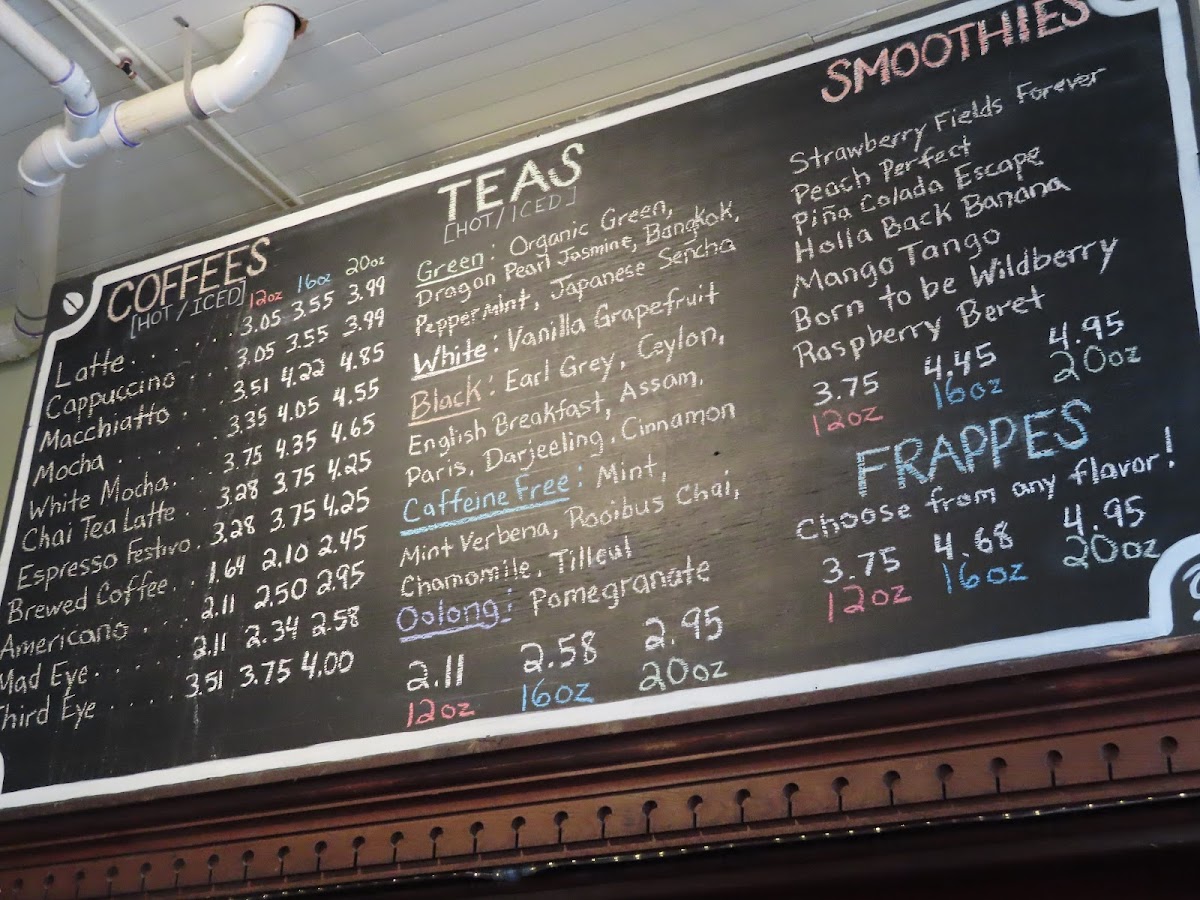 COFFEES
[HOT/ICED]
12oz 16oz 20oz
Latte...... 3.05 3.55 3.99
Cappuccino... 3.05 3.55 3.99
Macchiatto... 3.51 4.22 4.85
Mocha...... 3.35 4.05 4.55
White Mocha.. 3.75 4.35 4.65
Chai Tea Latte.. 3.28 3.75 4.25
Espresso Festivo. 3.28 3.75 4.25
Brewed Coffee.. 1.64 2.10 2.45
Americano... 2.11 2.50 2.95
Mad Eye...... 2.11 2.34 2.58
Third Eye..... 3.51 3.75 4.00
TEAS
[HOT/ICED]
Green: Organic Green,
Dragon Pearl Jasmine, Bangkok,
Peppermint, Japanese Sencha
White: Vanilla Grapefruit
Black: Earl Grey, Ceylon,
English Breakfast, Assam,
Paris, Darjeeling, Cinnamon
Caffeine Free: Mint,
Mint Verbena, Rooibus Chai,
Chamomile, Tilleul
Oolong: Pomegranate
2.11 2.58 2.95
12oz 16oz 20oz
SMOOTHIES
Strawberry Fields Forever
Peach Perfect
Piña Colada Escape
Holla Back Banana
Mango Tango
Born to be Wildberry
Raspberry Beret
3.75 4.45 4.95
12oz 16oz 20oz
FRAPPES
Choose from any flavor!
3.75 4.68 4.95
12oz 16oz 20oz